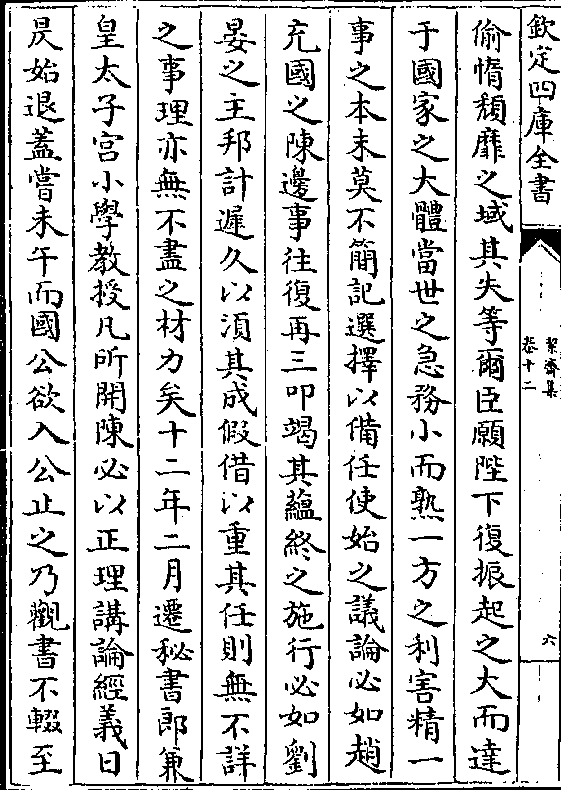 欽定四庫全書
絜齋集
卷十二
六
偷惰頽靡之域其失等爾臣願陛下復振起之大而達
于國家之大體當世之急務小而熟一方之利害精一
事之本末莫不簡記選擇以備任使始之議論必如趙
充國之陳邊事往復再三叩竭其蘊終之施行必如劉
晏之主邦計遲久以須其成假借以重其任則無不詳
之事理亦無不盡之材力矣十二年二月遷秘書郎兼
皇太子宫小學教授凡所開陳必以正理講論經義日
昃始退蓋嘗未午而國公欲入公止之乃觀書不輟至